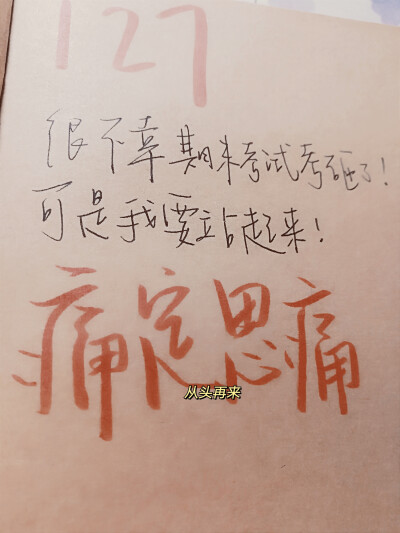 127
很不幸期末考试考砸了!
可是我要站起来!
痛定思痛
从头再来